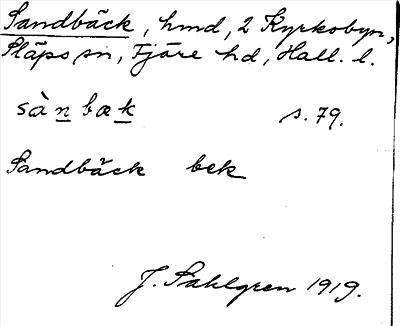 Sandbäck, hmd, 2 Kyrkobyn,
Släps sn, Fjäre hd, Hall. l.
sà n bæ k s. 79.
Sandbäck bek
J. Sahlgren 1919.